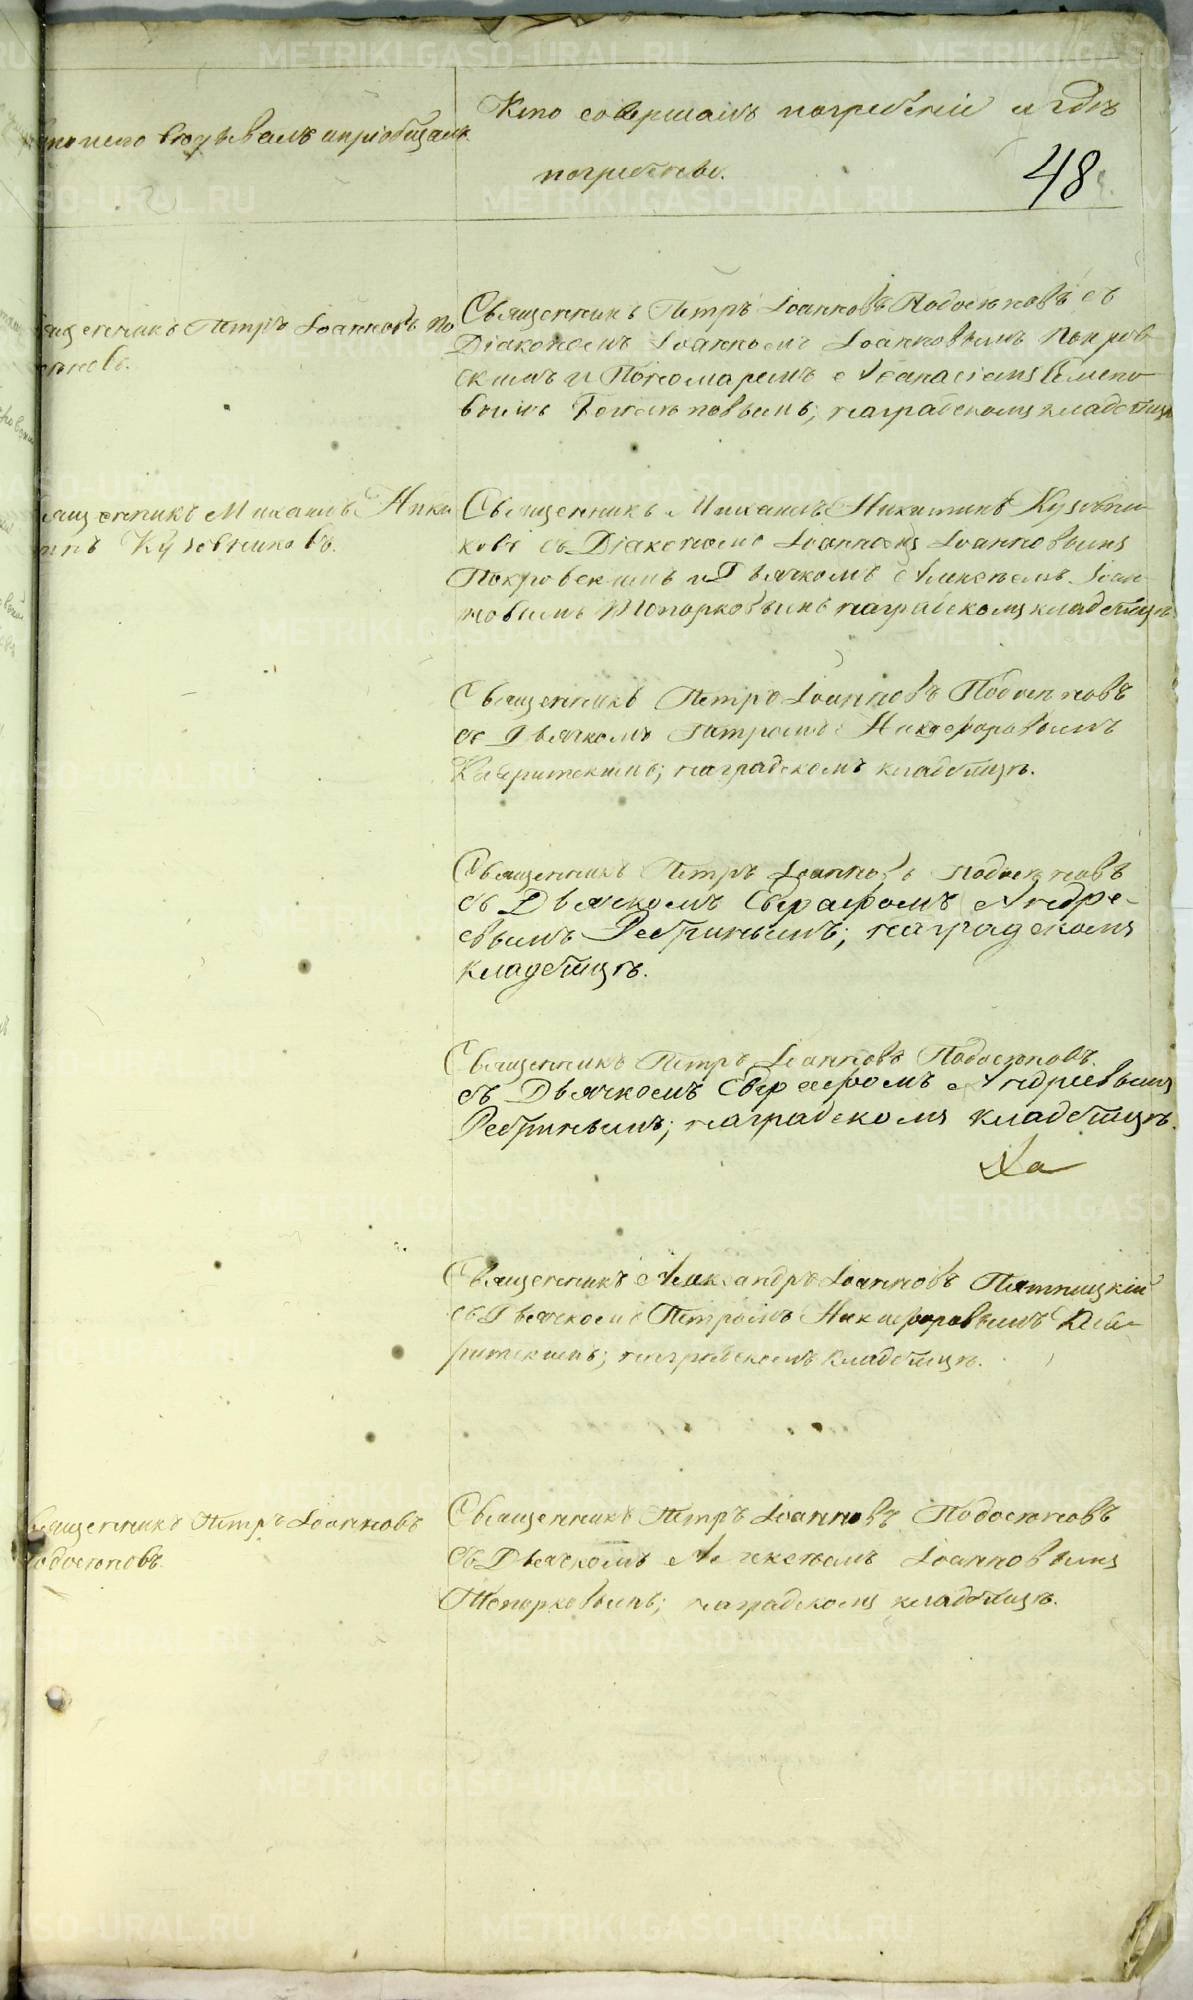 Кто исповѣдывалъ и пріобщалъ.
Кто совершалъ погребеніе и гдѣ
погребены.
48
Священникъ Петръ Іоанновъ По
Священникъ Петръ Іоанновъ Подосеновъ съ
Діакономъ Іоанномъ Іоанновымъ Покров
скимъ и Пономаремъ Аѳанасіемъ Семено
вымъ наградскомъ кладбищѣ
Священникъ Михаилъ Ники
тинъ Кузовниковъ.
Священникъ Михаилъ Никитинъ Кузовни
ковъ съ Діакономъ Іоанномъ Іоанновымъ
Покровскимъ и Дьячкомъ Алексѣемъ Іоан
новымъ Топорковымъ наградскомъ кладбищѣ
Священникъ Петръ Іоанновъ Подосеновъ
съ Дьячкомъ Петромъ Никифоровымъ
наградскомъ кладбищѣ.
Священникъ Петръ Іоанновъ Подосеновъ
съ Дьячкомъ Евграфомъ Андре-
евымъ Ребринымъ; наградскомъ
кладбищѣ.
Священникъ Петръ Іоанновъ Подосеновъ
съ Дьячкомъ Евграфомъ Андреевымъ
Ребринымъ; наградскомъ кладбищѣ.
Священникъ Александръ Іоанновъ Пятницкій
съ Дьячкомъ Петромъ Никифоровымъ
наградскомъ кладбищѣ.
Священникъ Петръ Іоанновъ
Подосеновъ.
Священникъ Петръ Іоанновъ Подосеновъ
съ Дьячкомъ Алексѣемъ Іоанновымъ
Топорковымъ; наградскомъ кладбищѣ.
METRIKI.GASO-URAL.RU